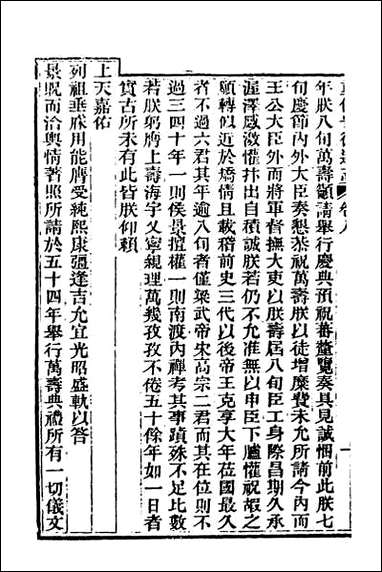 年朕八旬萬壽籲請舉行慶典預祝蕃釐覽奏具見誠悃前此朕七
旬慶節內外大臣奏懇恭祝萬壽朕以徒增糜費未允所請今內而
王公大臣外而將軍督撫大吏以朕壽居八旬臣工身際昌期久承
渥澤感激懽忭出自積誠朕若仍不允准無以申臣下臚懽祝嘏之
願轉似近於矯情且載稽前史三代以後帝王克享大年莅國最久
者不過六君其年逾八旬者僅梁武帝宋高宗二君而其在位則不
過三四十年一則侯景擅權一則南渡內禪考其事蹟殊不足比數
若朕躬膺上壽海宇乂寧親理萬幾孜孜不倦五十餘年如一日者
實古所未有此皆朕仰賴
上天嘉佑
列祖垂庥用能膺受純熙康彊逢吉允宜光昭盛軌以答
景貺而洽輿情著照所請於五十四年舉行萬壽典禮所有一切儀文